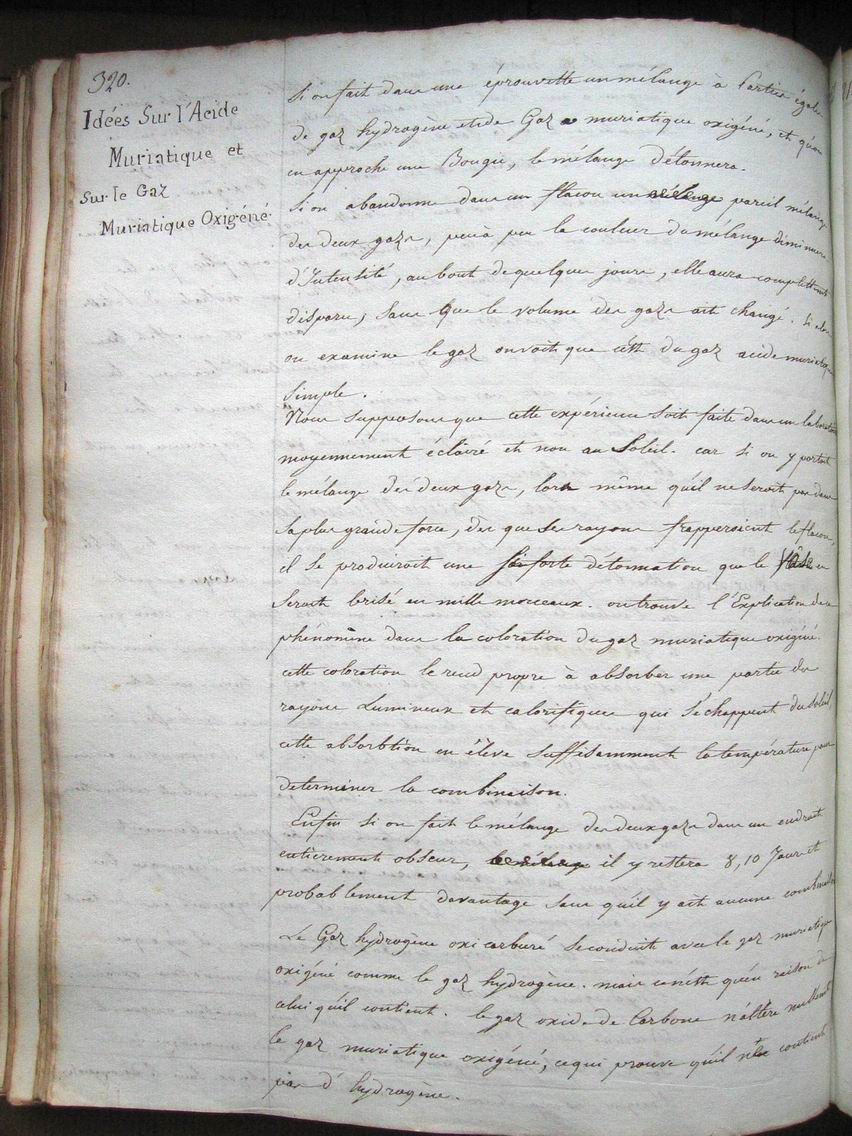 320.
Idées Sur l'Acide
Muriatique et
Sur le Gaz
Muriatique Oxigéné
Si on fait dans une éprouvette un mélange à Partie égale
de gaz hydrogène et de Gaz muriatique oxigéné, et qu'on
en approche une Bougie, le mélange détonnera.
Si on abandonne dans un flacon un mélange pareil mélange
des deux gazs, peu à peu la couleur du mélange diminuera
d'Intensité, au bout de quelques jours, elle aura complettement
disparu, sans que le volume des gazs ait changé. Si alors
on examine le gaz on voit que c'est du gaz acide muriatique
simple.
Nous supposons que cette expérience soit faite dans un laboratoire
moyennement éclairé et non au Soleil. car si on y portoit
le mélange des deux gazs, lors même qu'il ne seroit pas dans
sa plus grande force, des que ses rayons frapperoient le flacon,
il se produiroit une si forte détonnation que le Vase en
Seroit brisé en mille morceaux. on trouve l'Explication de ce
phénomène dans la coloration du gaz muriatique oxigéné.
cette coloration le rend propre à absorber une partie des
rayons Lumineux et calorifiques qui S'échappent du Soleil,
cette absorbtion en élève suffisamment la température pour
determiner la combinaison.
Enfin si on fait le mélange des deux gazs dans un endroit
entièrement obscur, le mélange il y restera 8, 10 Jours et
probablement davantage sans qu'il y ait aucune combinaison
Le Gaz hydrogène oxi carburé se conduit avec le gaz muriatique
oxigéné comme le gaz hydrogène. mais ce n'est qu'en raison de
celui qu'il contient. le gaz oxide de Carbone n'altère nullement
le gaz muriatique oxigéné, ce qui prouve qu'il ne contient
pas d'hydrogène.